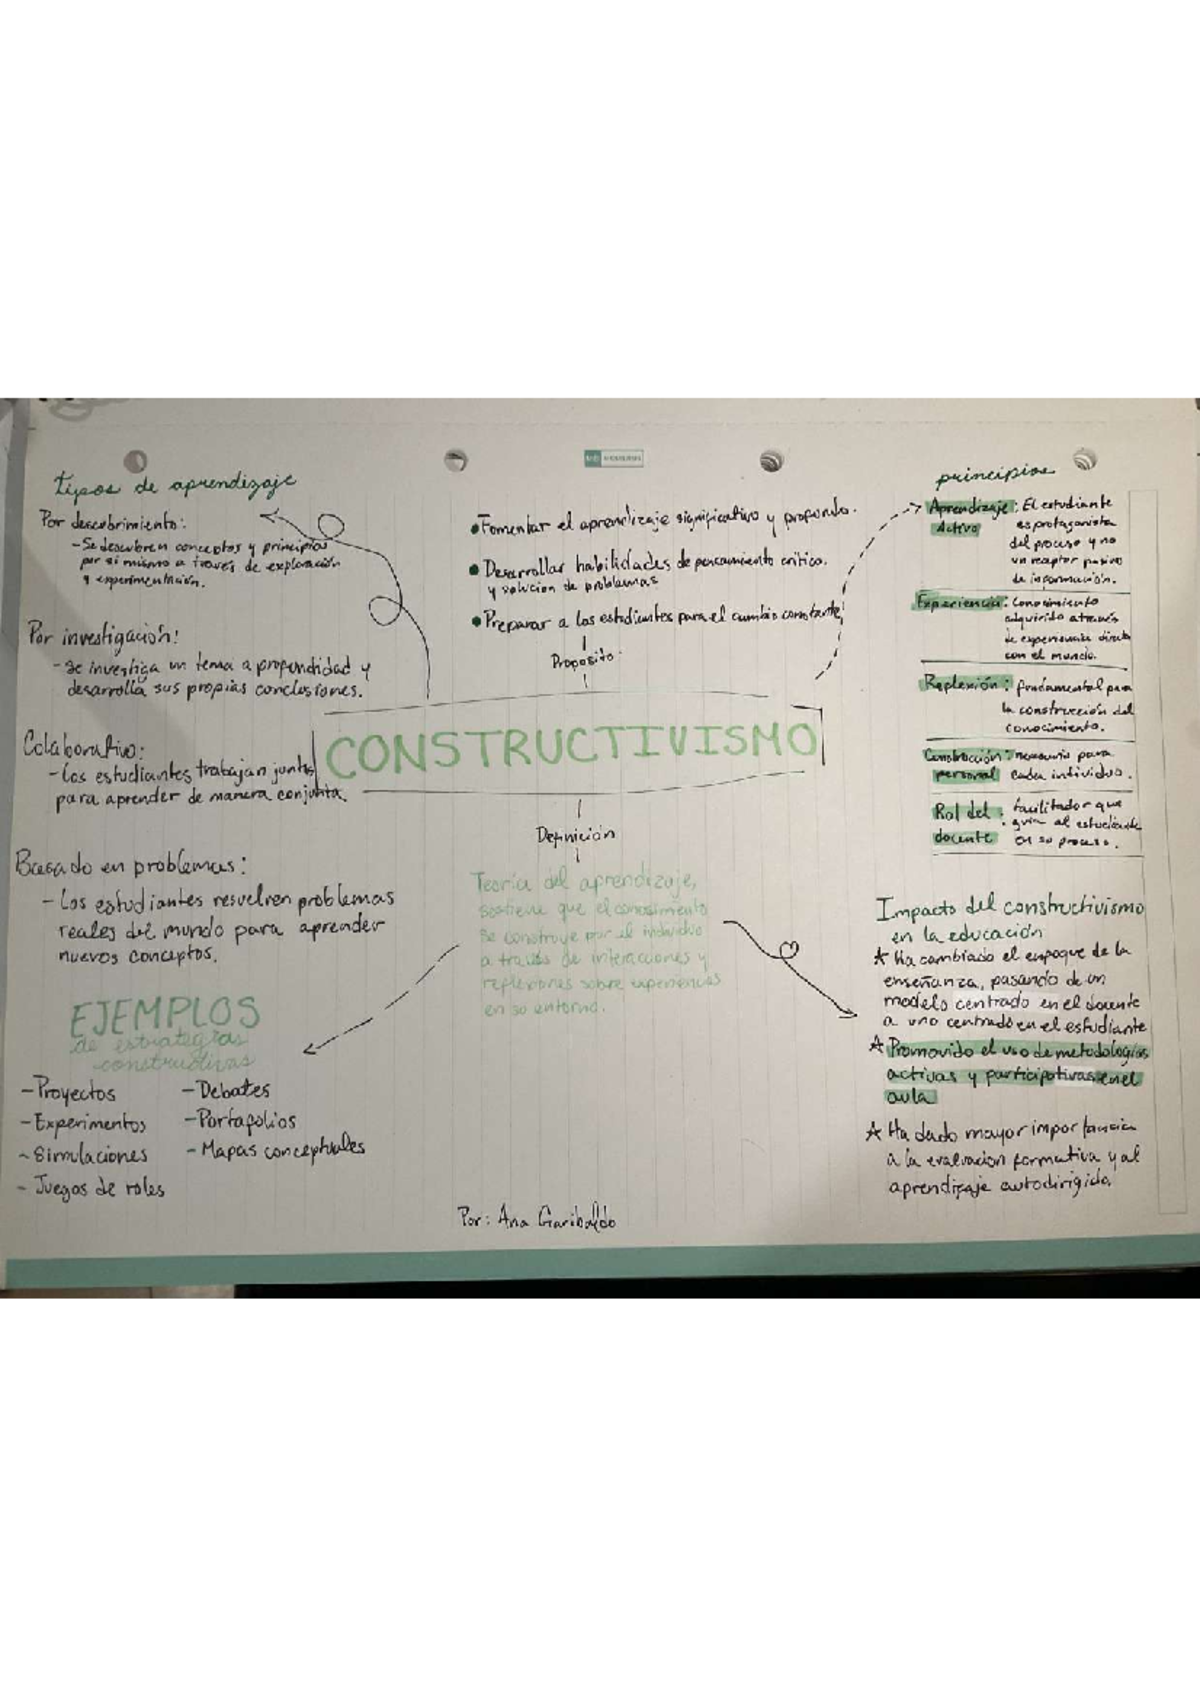 tipos de aprendizaje
Por descubrimiento:
- Se descubren conceptos y principios
por si mismo a través de exploración
y experimentación.
Por investigación:
- Se investiga un tema a profundidad y
desarrolla sus propias conclusiones.
Colaborativo:
- Los estudiantes trabajan juntos
para aprender de manera conjunta.
Basado en problemas:
- Los estudiantes resuelven problemas
reales del mundo para aprender
nuevos conceptos.
EJEMPLOS
de estrategias
constructivas
- Proyectos
- Experimentos
- Simulaciones
- Juegos de roles
- Debates
- Portafolios
- Mapas conceptuales
• Fomentar el aprendizaje significativo y profundo.
• Desarrollar habilidades de pensamiento crítico.
y solucion de problemas
• Preparar a los estudiantes para el cambio constante
Proposito
CONSTRUCTIVISMO
Definición
Teoría del aprendizaje,
sostiene que el conocimiento
se construye por el individuo
a través de interacciones y
reflexiones sobre experiencias
en su entorno.
Por: Ana Garibaldo
principios
Aprendizaje Activo: El estudiante
es protagonista
del proceso y no
un receptor pasivo
de información.
Experiencia: Conocimiento
adquirido através
de experiencia directa
con el mundo.
Reflexión: fundamental para
la construcción del
conocimiento.
Construcción personal: necesario para
cada individuo.
Rol del docente: facilitador que
guía al estudiante
en su proceso.
Impacto del constructivismo
en la educación
☆ Ha cambiado el enfoque de la
enseñanza, pasando de un
modelo centrado en el docente
a uno centrado en el estudiante
☆ Promovido el uso de metodologías
activas y participativas en el
aula
☆ Ha dado mayor importancia
a la evaluación formativa y al
aprendizaje autodirigido.